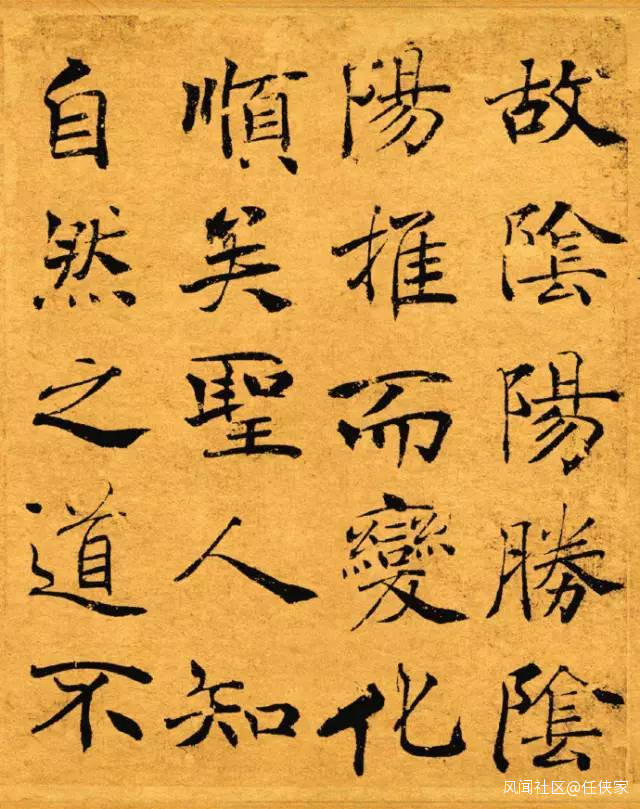 故陰陽勝陰
陽推而變化
順矣聖人知
自然之道不
风闻社区@任侠家